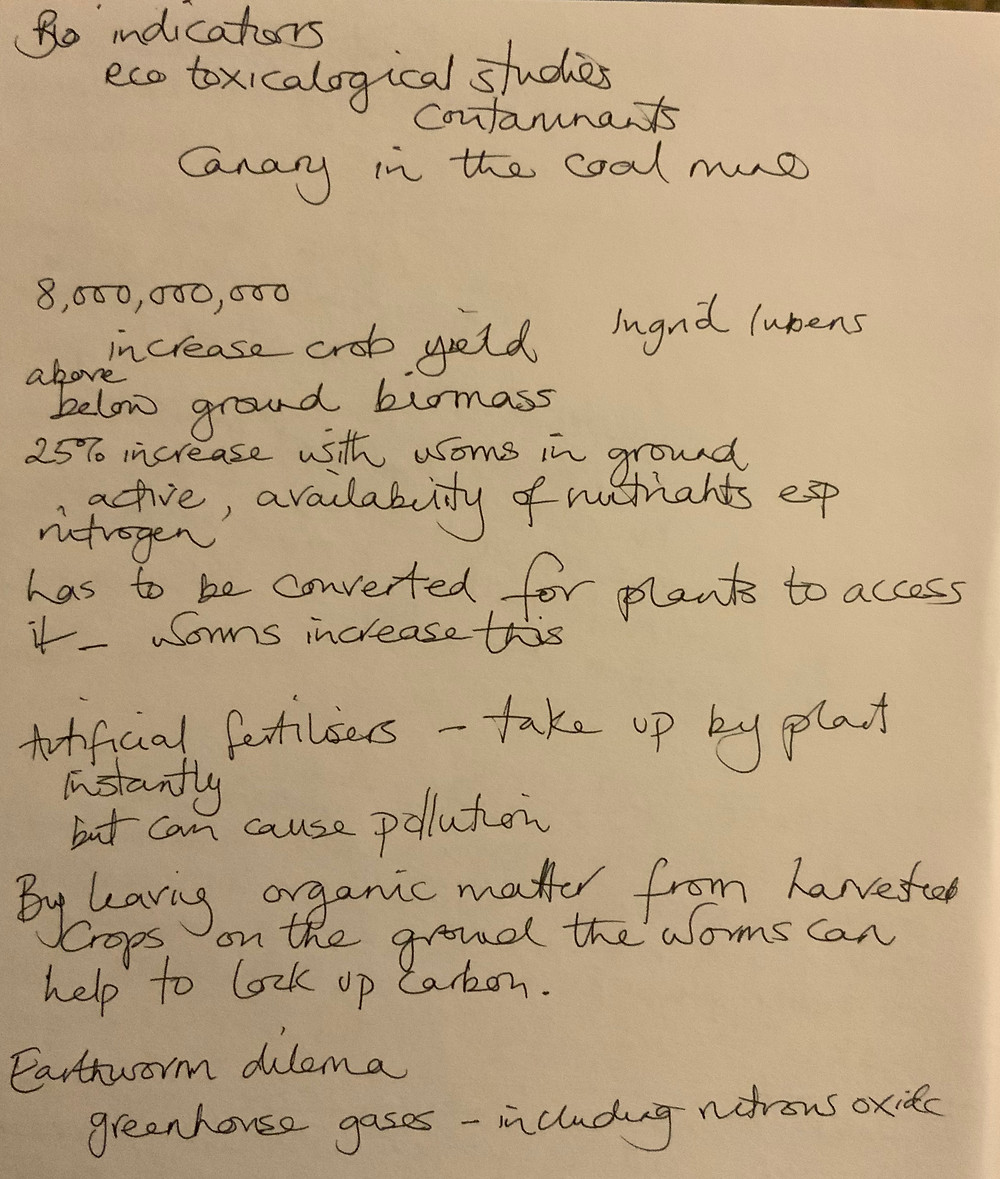 Bio indicators
eco toxicalogical studies
Contaminants
Canary in the coal mine
8,000,000,000
Ingrid lubens
increase crob yield
above
below ground biomass
25% increase with worms in ground
, active, availability of nutriants esp
nitrogen
has to be converted for plants to access
it - worms increase this
Artificial fertilisers - take up by plant
instantly
but can cause pollution
By leaving organic matter from harvested
crops on the ground the worms can
help to lock up carbon.
Earthworm dilema
greenhouse gases - including nitrous oxide